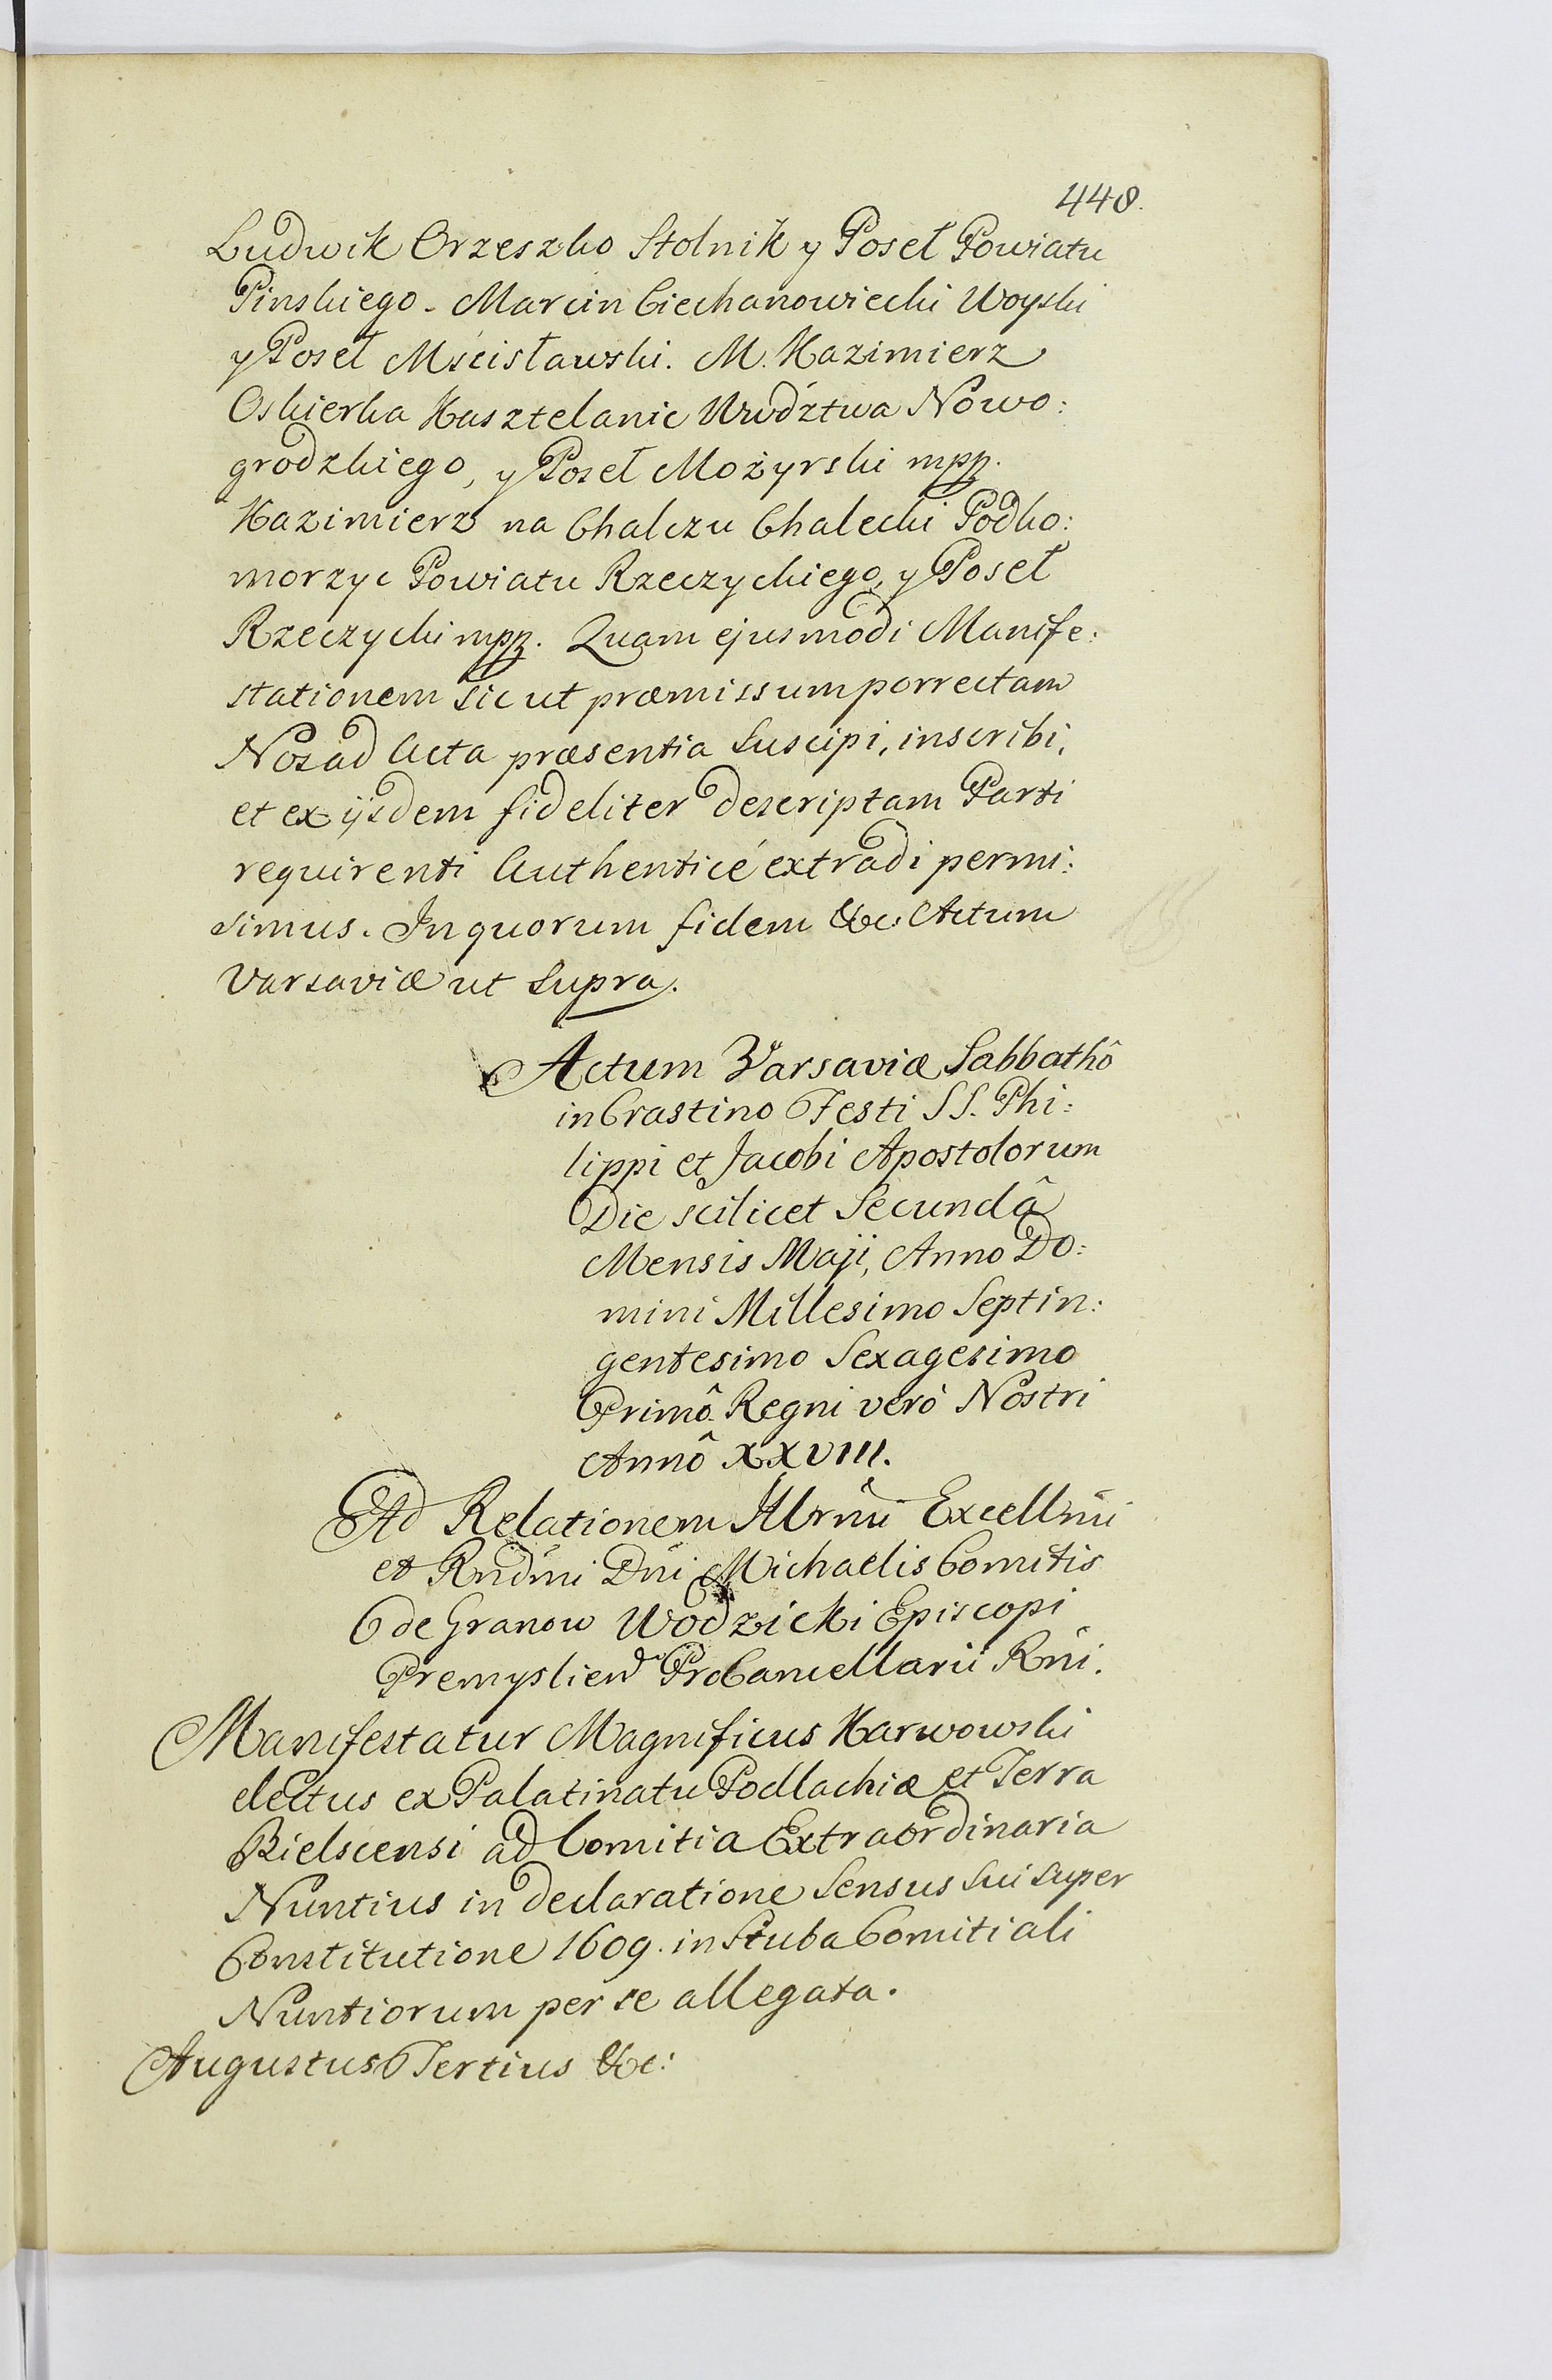 448.
Ludwik Orzeszko Stolnik y Poseł Powiatu
Pinskiego. Marcin Ciechanowiecki Woyski
y Poseł Mścisławski. M. Kazimierz
Oskierka Kasztelanic Wwdztwa Nowo:
grodzkiego, y Poseł Możyrski mpp.
Kazimierz na Chalczu Chalecki Podko:
morzyc Powiatu Rzeczyckiego, y Poseł
Rzeczycki mpp. Quam ejusmodi Manife:
stationem sic ut præmissum porrectam
Nos ad Acta præsentia suscipi, inscribi,
et ex ijsdem fideliter descriptam Parti
requirenti Authenticé extradi permi:
simus. In quorum fidem &c. Actum
Varsaviæ ut supra.
Actum Varsaviæ Sabbathô
in Crastino Festi SS. Phi:
lippi et Jacobi Apostolorum
Die scilicet Secundâ
Mensis Maji, Anno Do:
mini Millesimo Septin:
gentesimo Sexagesimo
Primô Regni verò Nostri
Annô XXVIII.
Ad Relationem Illrmi Excellmi
et Rndmi Dni Michaelis Comitis
de Granow Wodzicki Episcopi
Premyslien ProCancellarii Rni.
Manifestatur Magnificus Karwowski
electus ex Palatinatu Podlachiæ et Terra
Bielscensi ad Comitia Extraordinaria
Nuntius in declaratione Sensus sui super
Constitutione 1609. in Stuba Comitiali
Nuntiorum per se allegata.
Augustus Tertius &c: